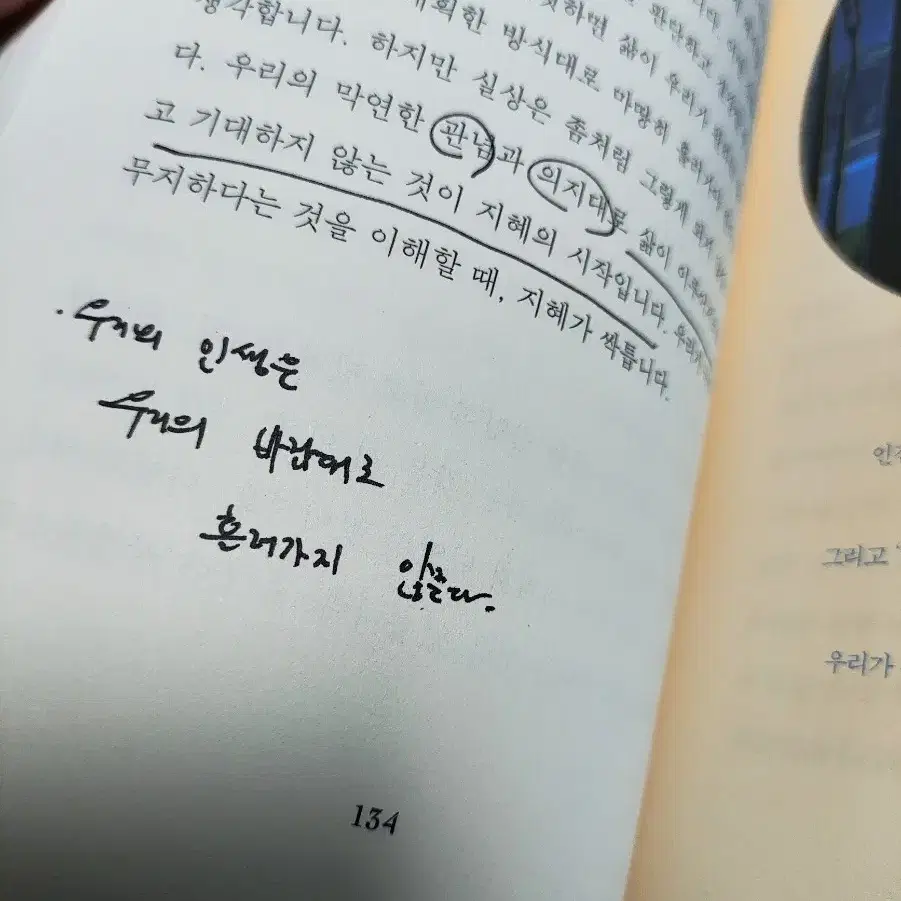 계획한 방식대로 마땅히 흘러가야
생각합니다. 하지만 실상은 좀처럼 그렇게 되지
다. 우리의 막연한 관념과 의지대로 삶이
고 기대하지 않는 것이 지혜의 시작입니다. 우리가
무지하다는 것을 이해할 때, 지혜가 싹틉니다.
· 우리의 인생은
우리의 바람대로
흘러가지 않는다.
134
그리고
우리가